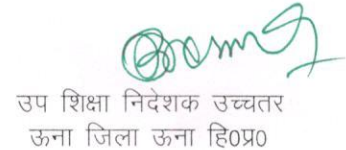 उप शिक्षा निदेशक उच्चतर
ऊना जिला ऊना हि0प्र0